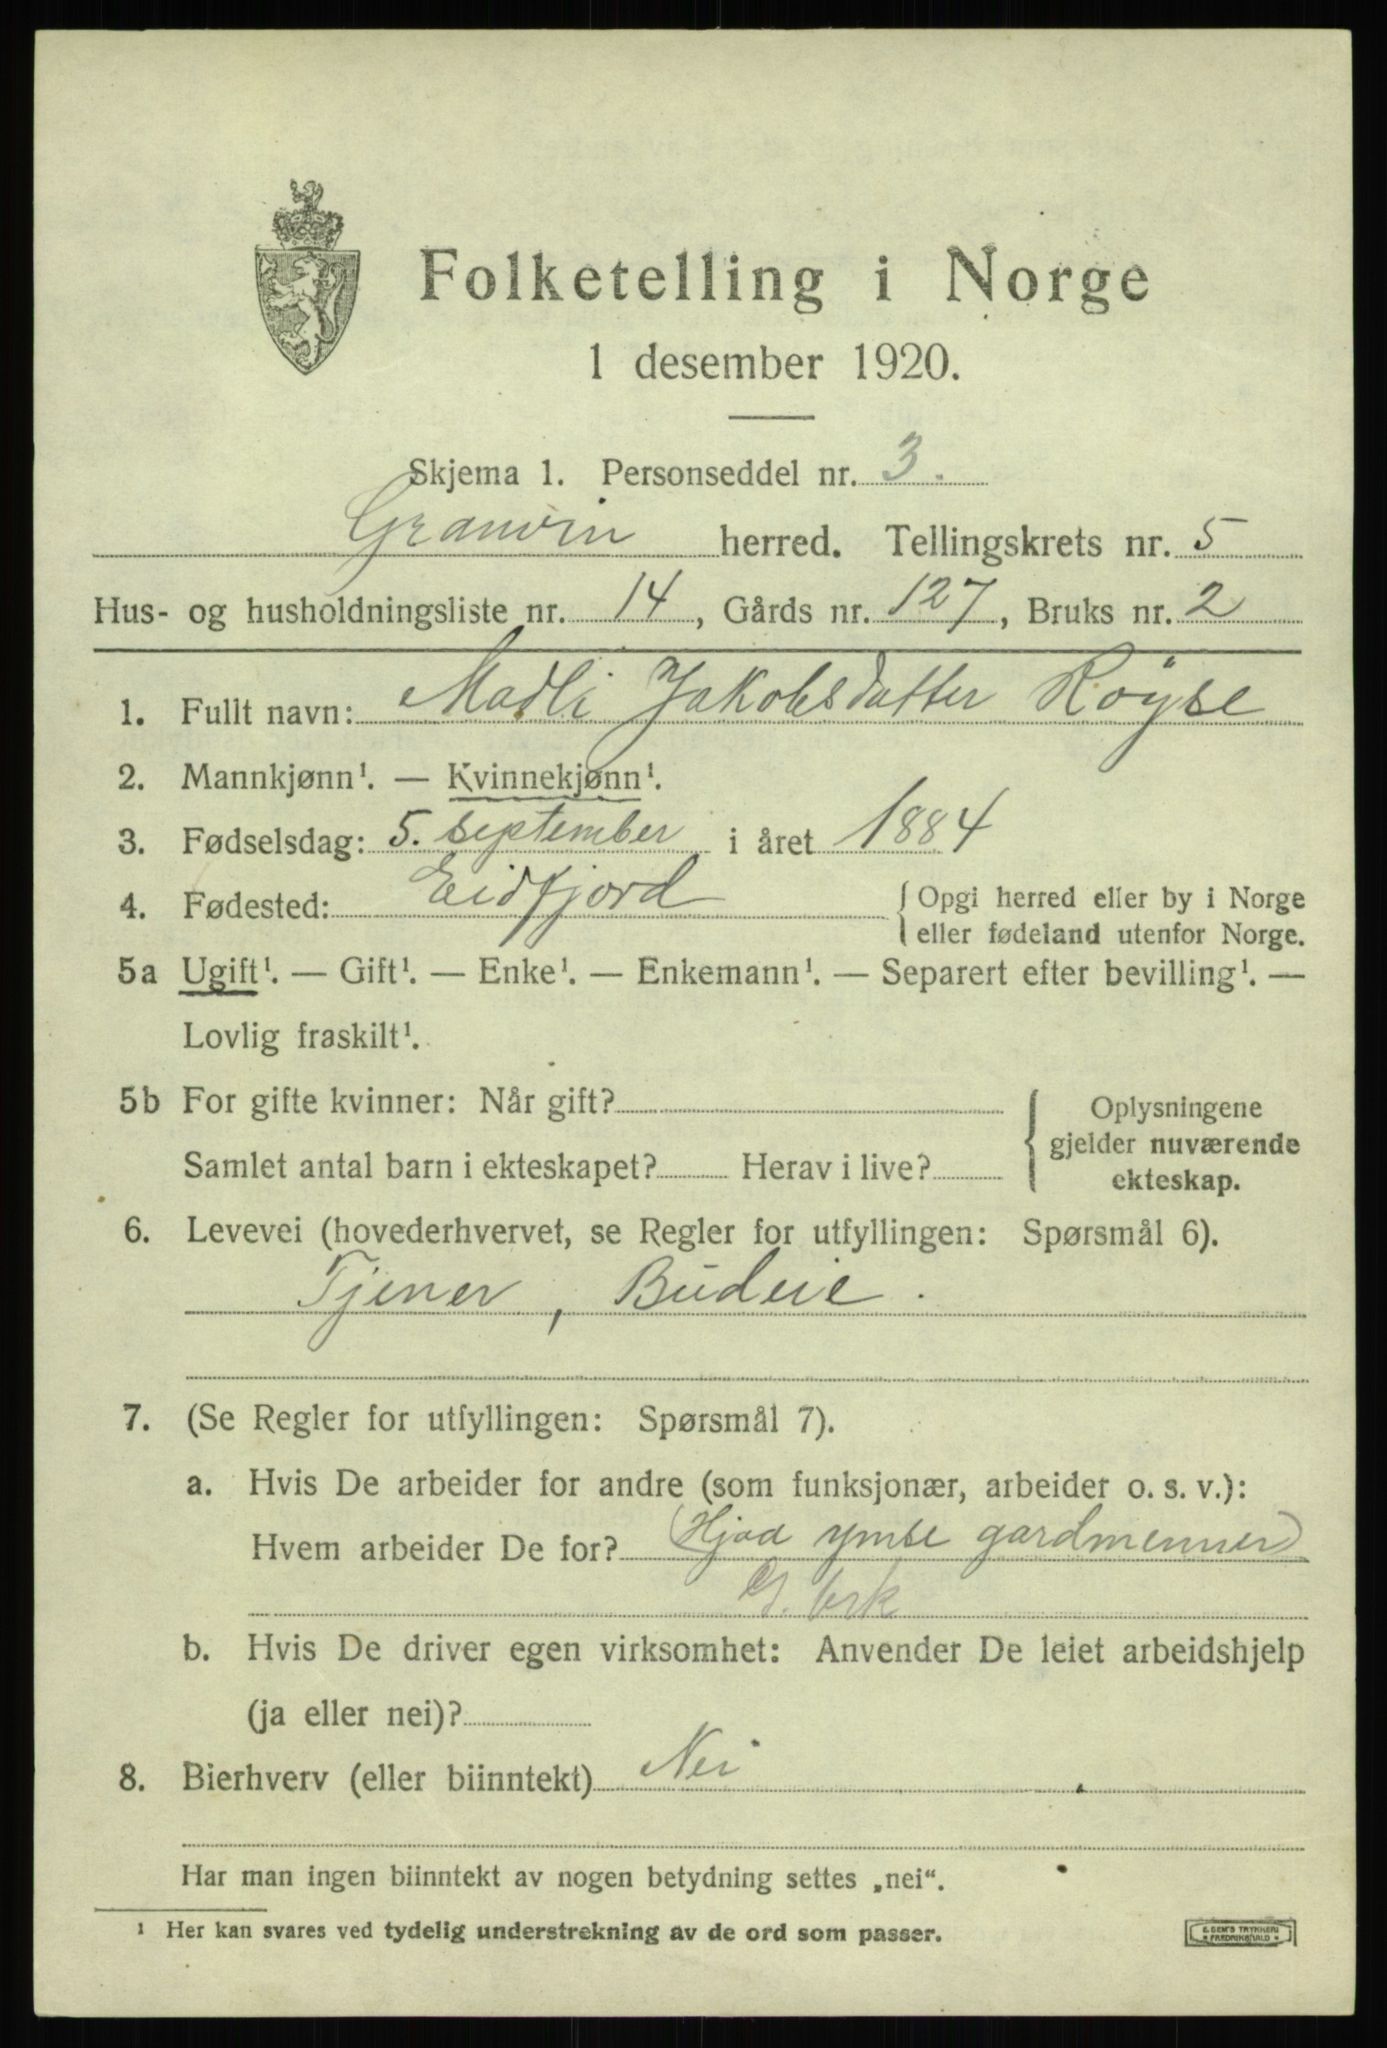 Folketelling i Norge
1 desember 1920.
Skjema 1. Personseddel nr. 3.
Granvin herred. Tellingskrets nr. 5
Hus- og husholdningsliste nr. 14, Gårds nr. 127, Bruks nr. 2
1. Fullt navn: Madli Jakobsdatter Röyse
2. Mannkjønn¹. — Kvinnekjønn¹.
3. Fødselsdag: 5. september i året 1884
4. Fødested: Eidfjord { Opgi herred eller by i Norge
eller fødeland utenfor Norge.
5a Ugift¹. — Gift¹. — Enke¹. — Enkemann¹. — Separert efter bevilling¹. —
Lovlig fraskilt¹.
5b For gifte kvinner: Når gift?
Samlet antal barn i ekteskapet? Herav i live?
{ Oplysningene
gjelder nuværende
ekteskap.
6. Levevei (hovederhvervet, se Regler for utfyllingen: Spørsmål 6).
Tjener, Budeie.
7. (Se Regler for utfyllingen: Spørsmål 7).
a. Hvis De arbeider for andre (som funksjonær, arbeider o. s. v.):
Hvem arbeider De for? (Hjaa ymse gardmenner)
b. Hvis De driver egen virksomhet: Anvender De leiet arbeidshjelp
(ja eller nei)?
8. Bierhverv (eller biinntekt) Nei
Har man ingen biinntekt av nogen betydning settes „nei“.
¹ Her kan svares ved tydelig understrekning av de ord som passer.